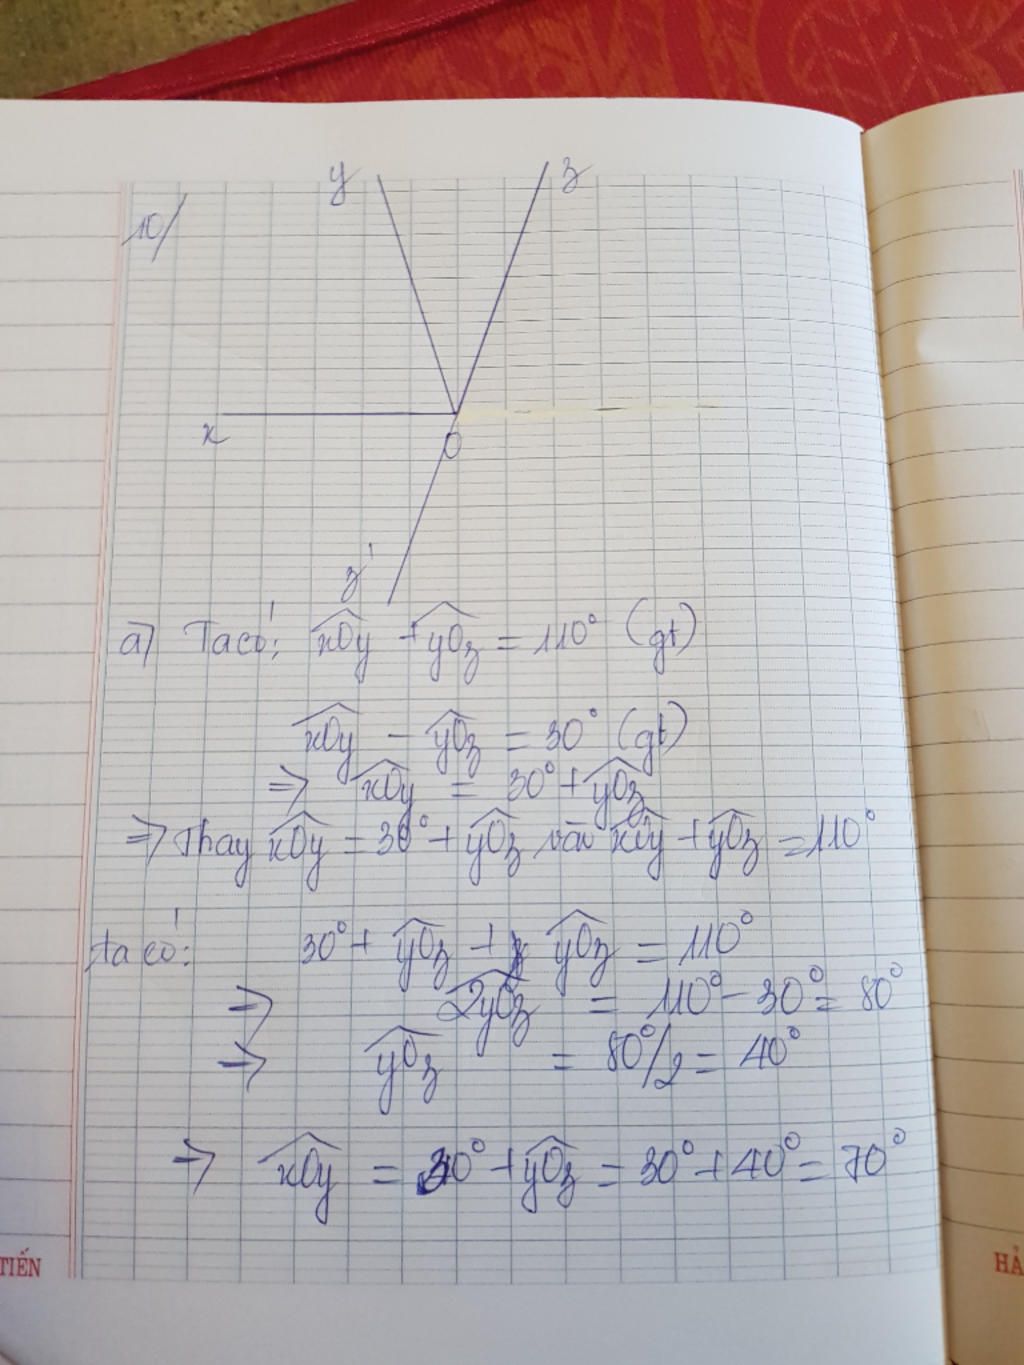 y z
10/
x O
z'
a) Ta có: xOy + yOz = 110° (gt)
xOy - yOz = 30° (gt)
=> xOy = 30° + yOz
=> Thay xOy = 30° + yOz vào xOy + yOz = 110°
ta có: 30° + yOz + yOz = 110°
=> 2yOz = 110° - 30° = 80°
=> yOz = 80°/2 = 40°
=> xOy = 30° + yOz = 30° + 40° = 70°
TIẾN
HẢ